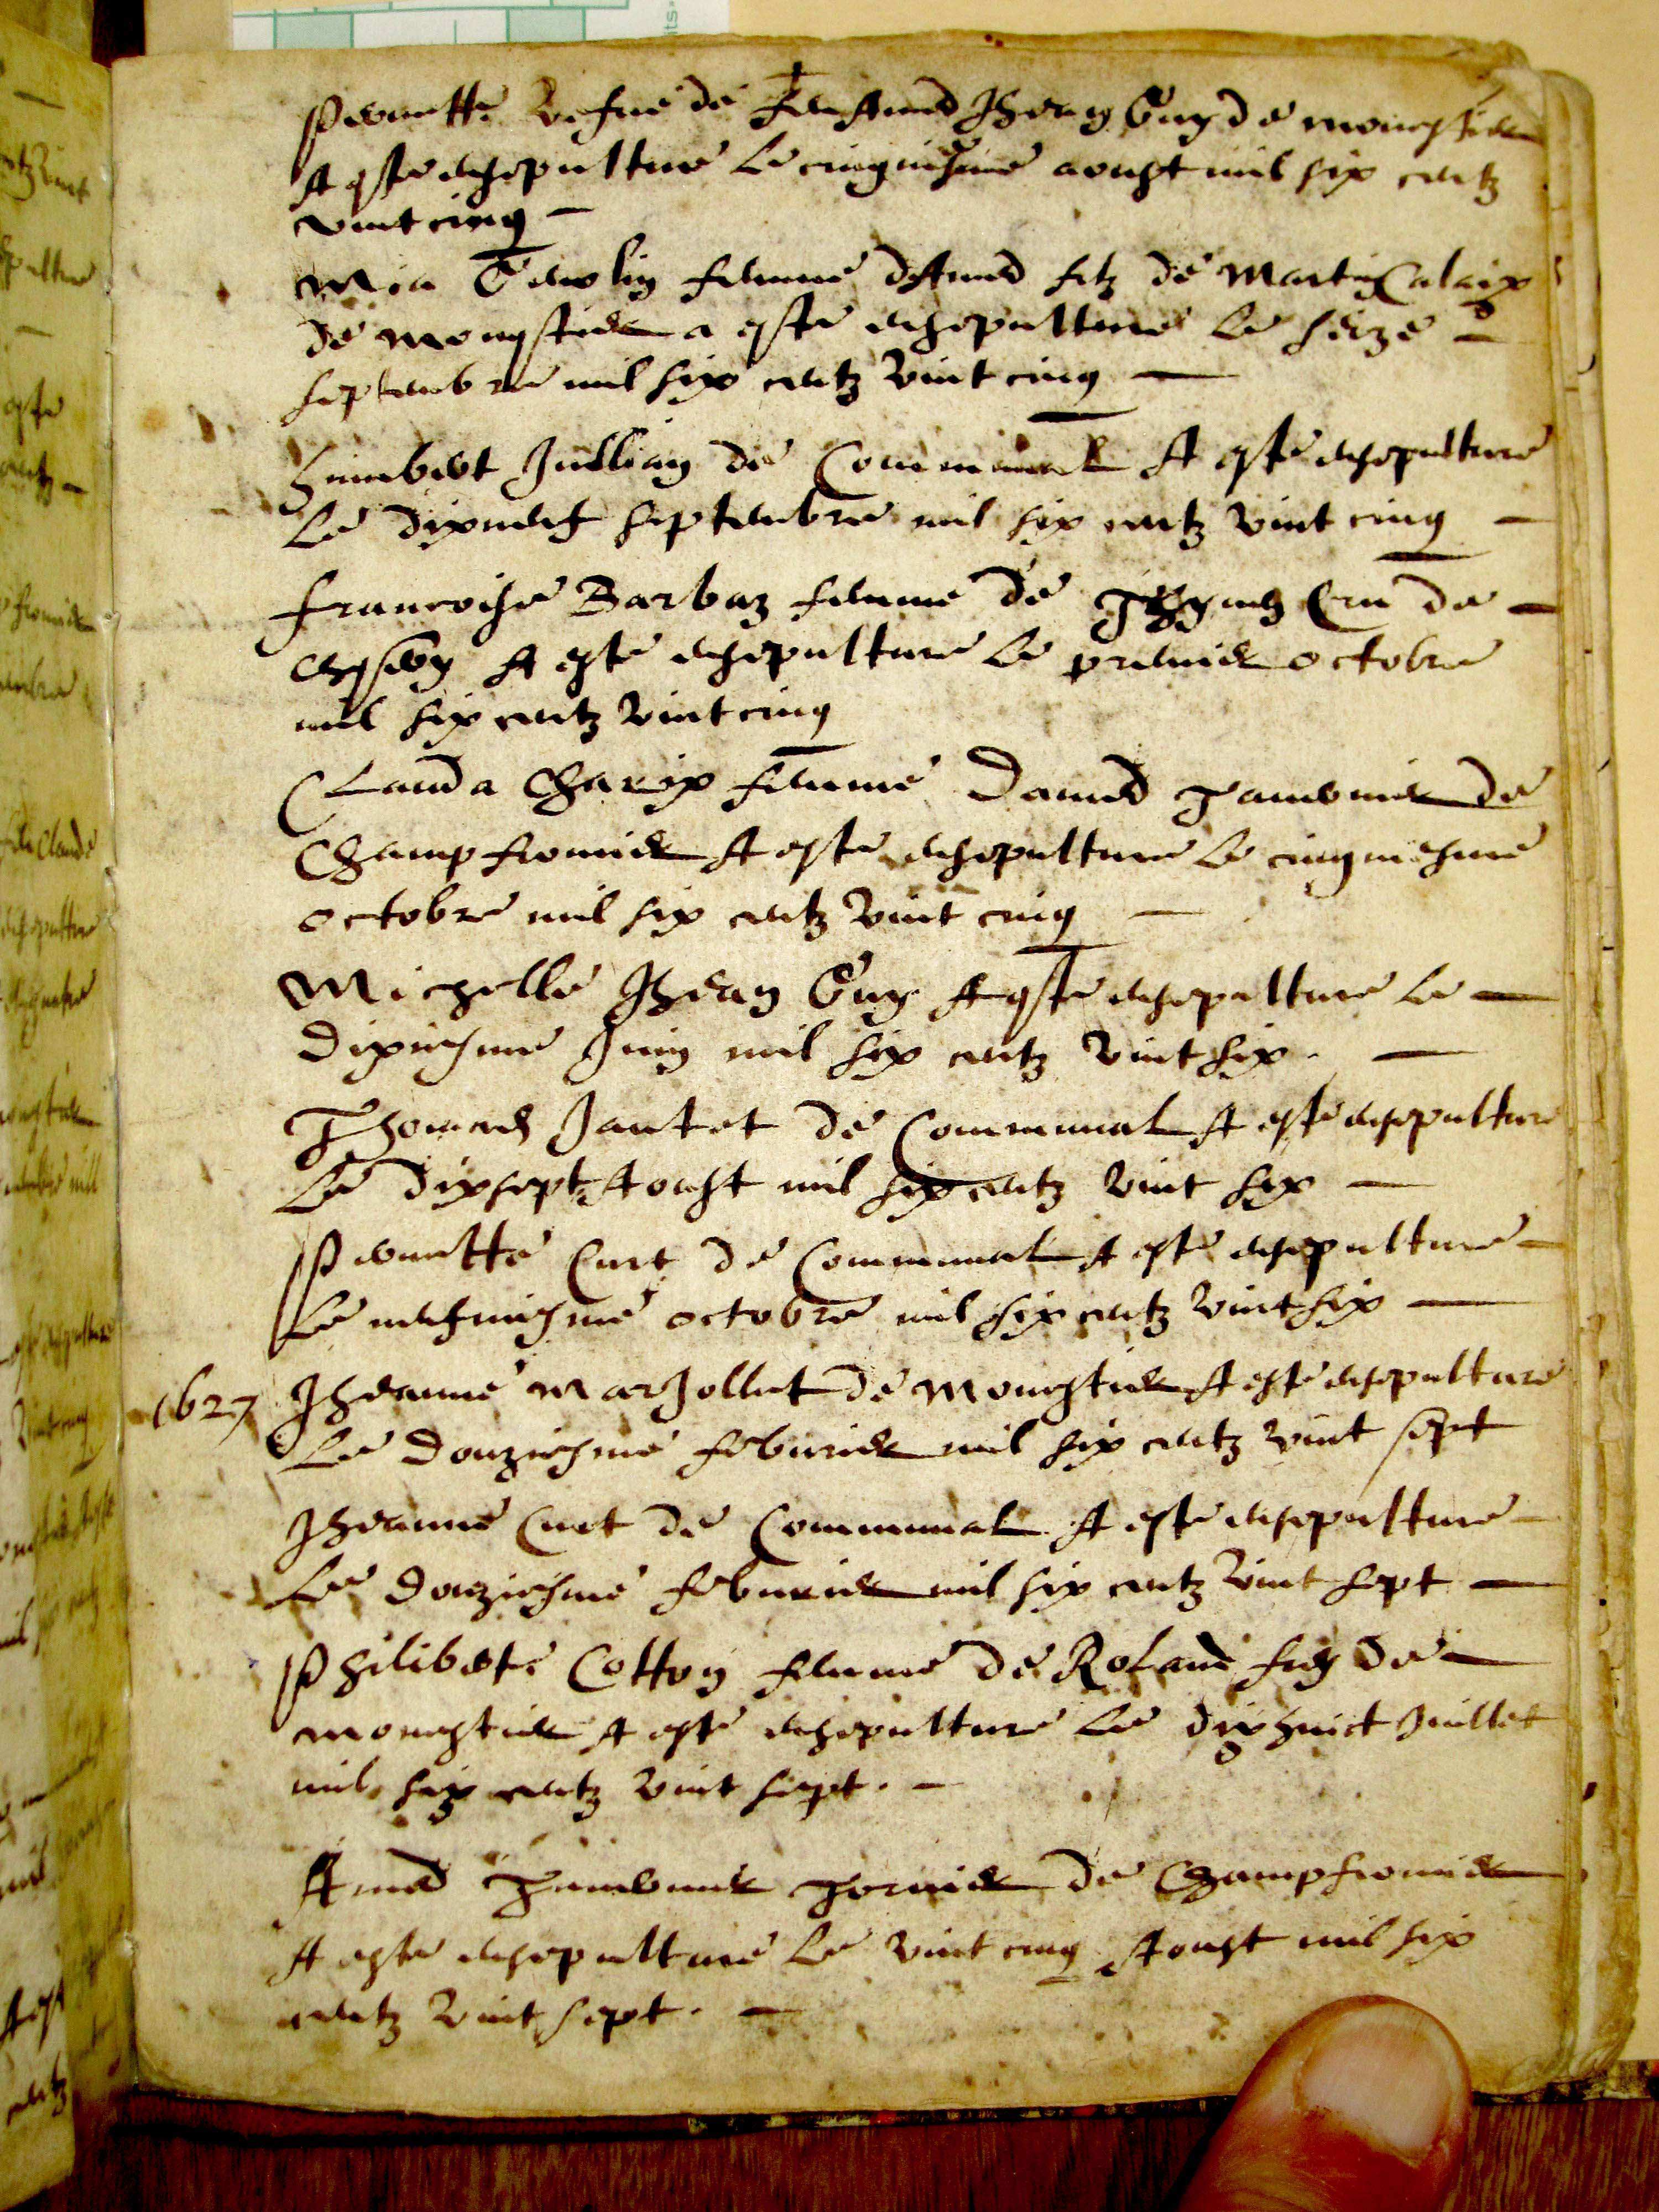 Pernette vefue de feu Amed Jhean Guy de monestier
A este ensepulture le cinquiesme aoust mil six centz
vint cinq
Mia femme dAmed filz de Martin Calaix
de monestier a este ensepulture le seize
septembre mil six centz vint cinq
humbert Jullian de Communal A este ensepulture
Le dixneuf septembre mil six centz vint cinq
francoise Barbaz femme de Cru de
A este ensepulture le premier octobre
mil six centz vint cinq
Clauda Charix femme Damed Tavernier de
Champfromier A este ensepulture le cinquiesme
octobre mil six centz vint cinq
Michelle Jhean Guy A este ensepulture le
dixiesme Juin mil six centz vint six.
Thomas Jantet de Communal A este ensepulture
Le dixsept Aoust mil six centz vint six
Pernette Curt de Communal A este ensepulture
Le neufuiesme octobre mil six centz vint six
1627 Jheanne Marjollet de Monestier A este ensepulture
Le douziesme feburier mil six centz vint sept
Jheanne Curt de Communal A este ensepulture
Le douziesme feburier mil six centz vint sept
Philiberte Cotton femme de Roland de
monestier A este ensepulture le dixhuict Juillet
mil six centz vint sept.
Amed Tavernier Tornier de Champfromier
A este ensepulture le vint cinq Aoust mil six
centz vint sept.